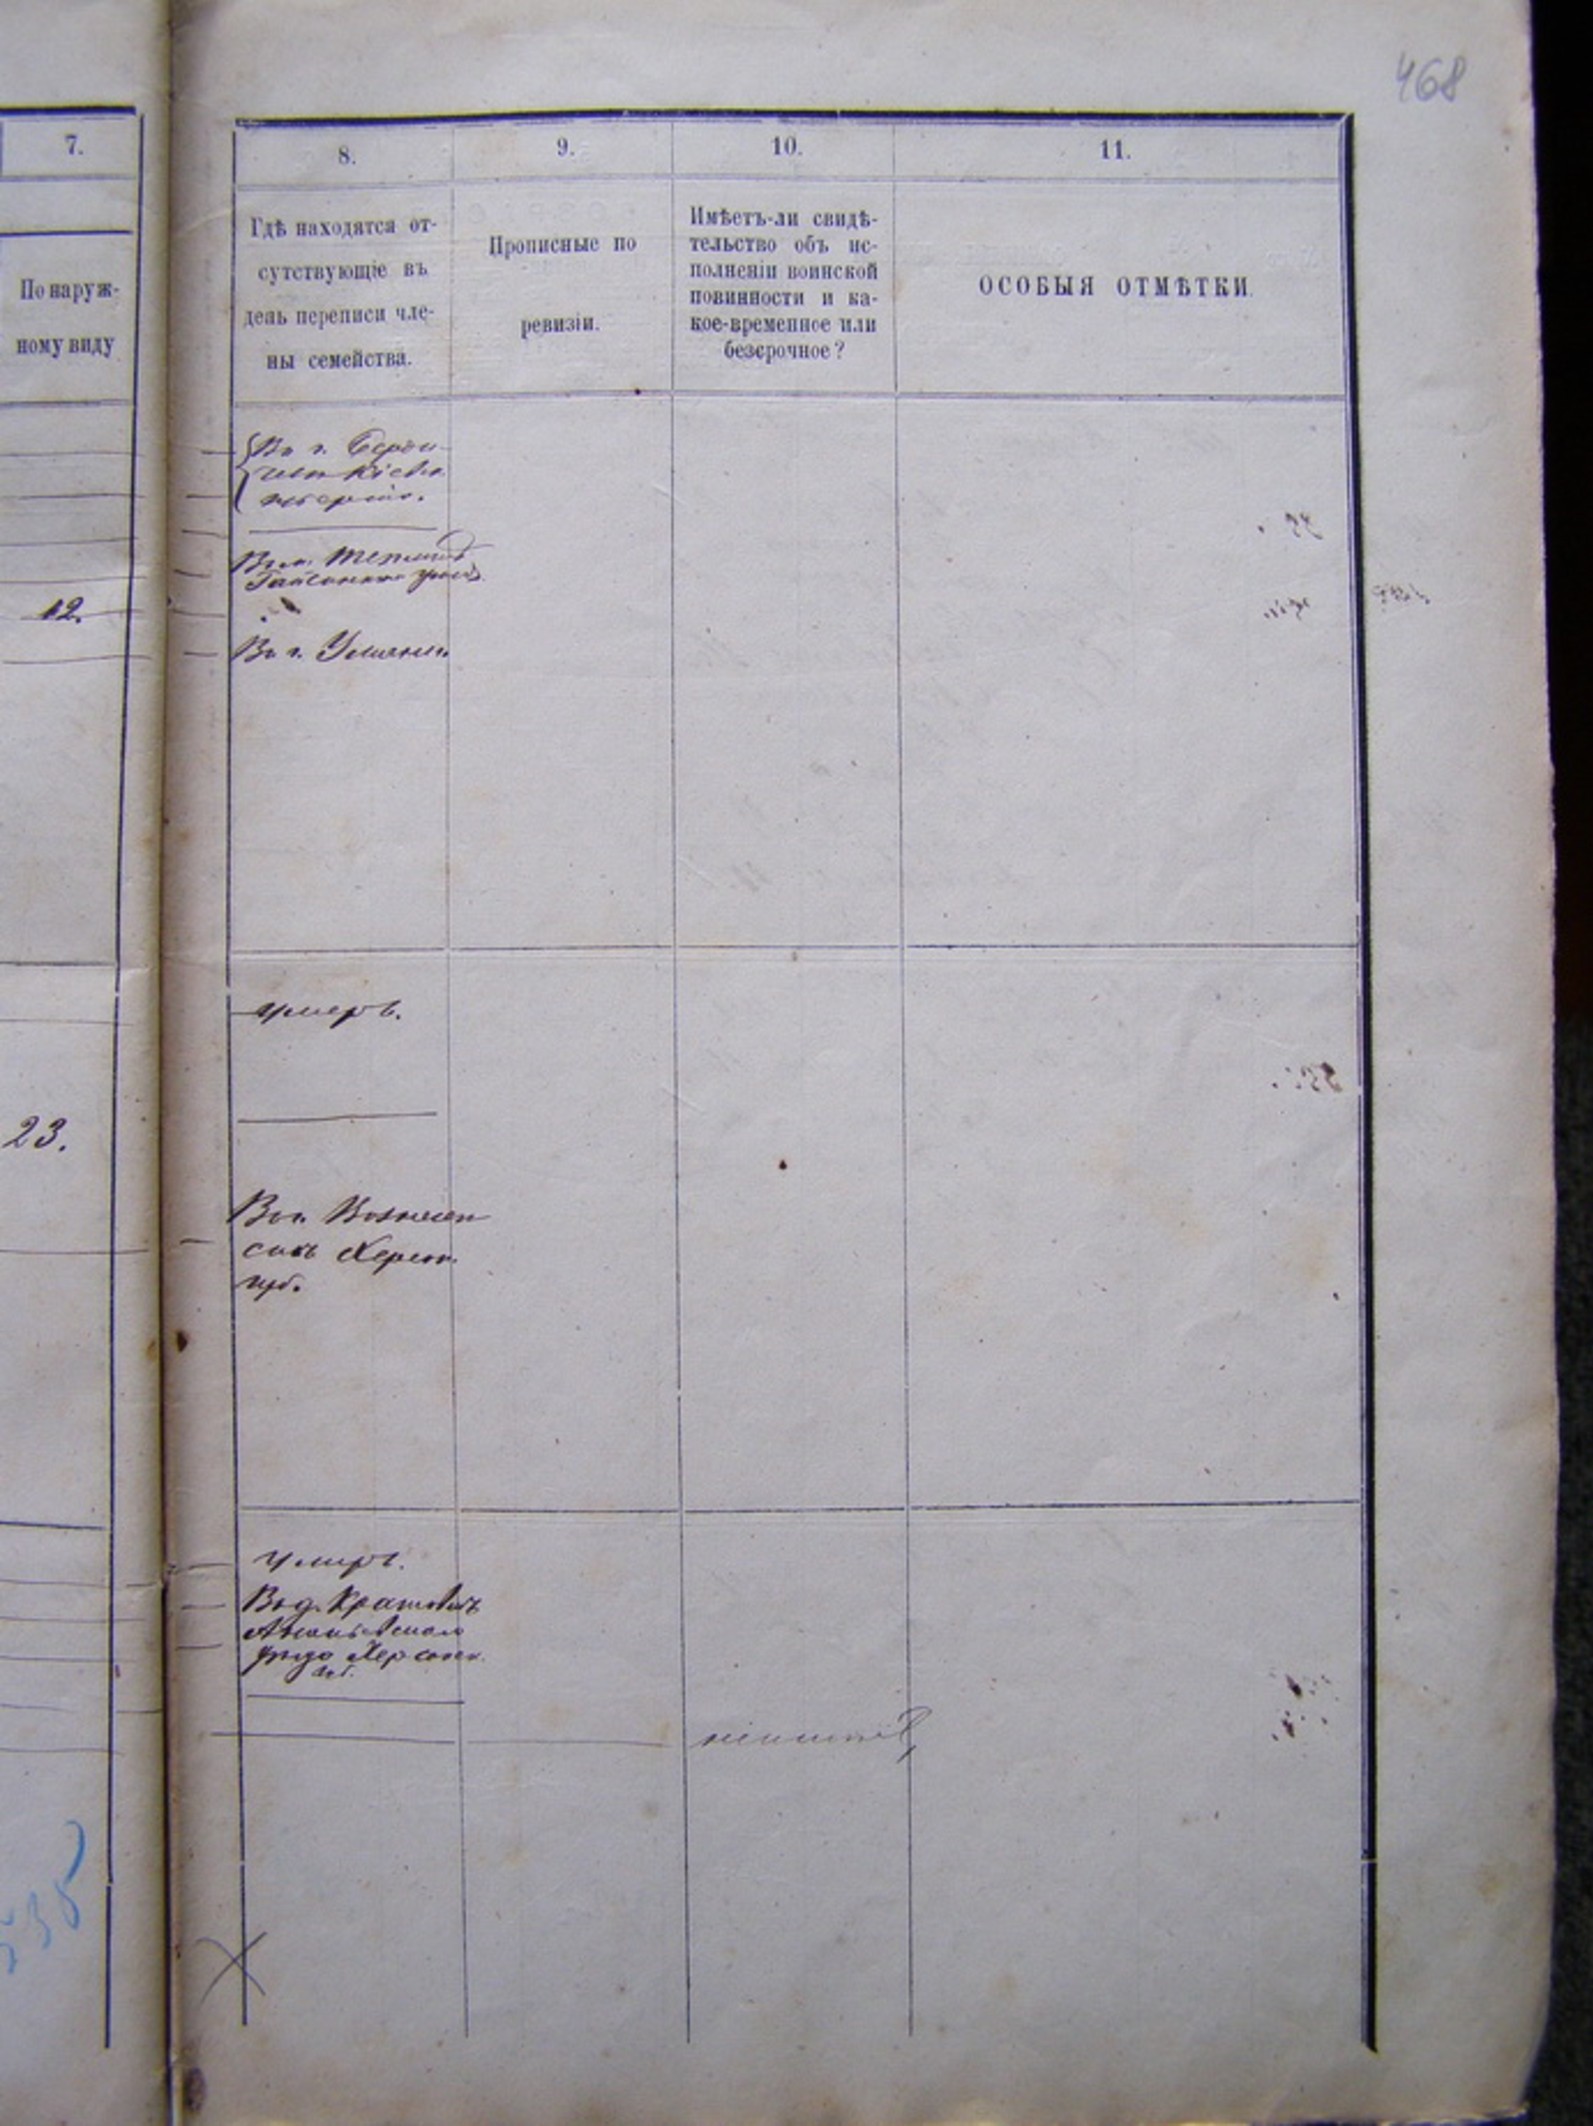 468
7.
По наруж-
ному виду
12.
23.
8.
9.
10.
11.
Гдѣ находятся от-
сутствующіе въ
день переписи чле-
ны семейства.
Прописные по
ревизіи.
Имѣетъ-ли свидѣ-
тельство объ ис-
полненіи воинской
повинности и ка-
кое-временное или
безсрочное?
ОСОБЫЯ ОТМѢТКИ.
Въ г. Берди-
чевѣ Кіевск.
губерніи.
Въ м.
Гайсинскаго
Въ г. Умани
умеръ.
Въ г. Вознесен
скѣ Херсон.
губ.
умеръ.
Въ д.
Ананьевскаго
уѣзда Херсонск.
губ.